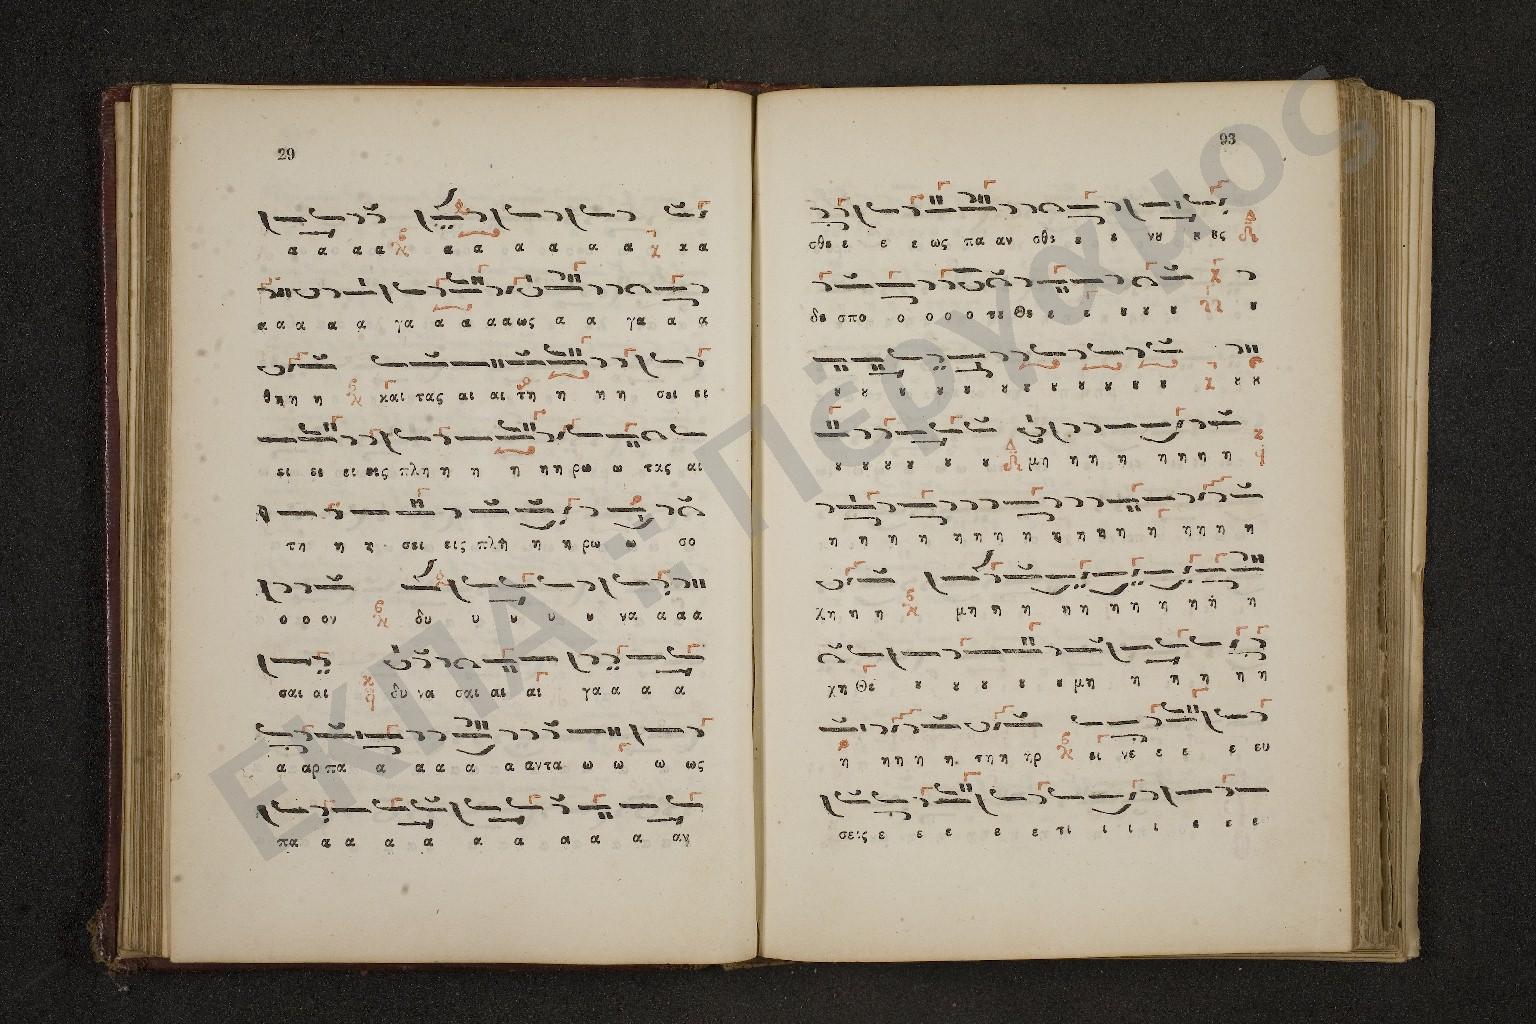 29
α α α α α α α α α α κ α
α α α α α γα α α α α ως α α γα α α
θη η η και τας αι αι τη η η η σει ει
ει ει ει εις πλη η η η η η ρω ω τας αι
τη η η σει εις πλη η η ρω ω σο
ο ο ον δυ υ υ υ υ να α α α
σαι αι δυ να σαι αι αι γα α α α
α αρ πα α α α α α αντα ω ω ω ως
πα α α α α α α α α α αν
93
σθε ε ε ε ως πα αν σθε ε ε νȣ ȣ ȣς
δε σπο ο ο ο ο τε Θε ε ε ȣ ȣ ȣ ȣ
ȣ ȣ ȣ ȣ ȣ ȣ ȣ ȣ ȣ ȣ ȣ ȣ ȣ
ȣ ȣ ȣ ȣ ȣ ȣ ȣ μη η η η η η η η
η η η η η η η η η η η η η η η η η
χη η η μη η η η η η η η η η η
χη Θε ȣ ȣ ȣ ȣ ȣ μη η η η η η
η η η η η τη η ηρ ει νε ε ε ε ε ευ
σεις ε ε ε ε ε τι ι ι ι ε ε ε
ΕΚΠΑ :: Πέργαμος